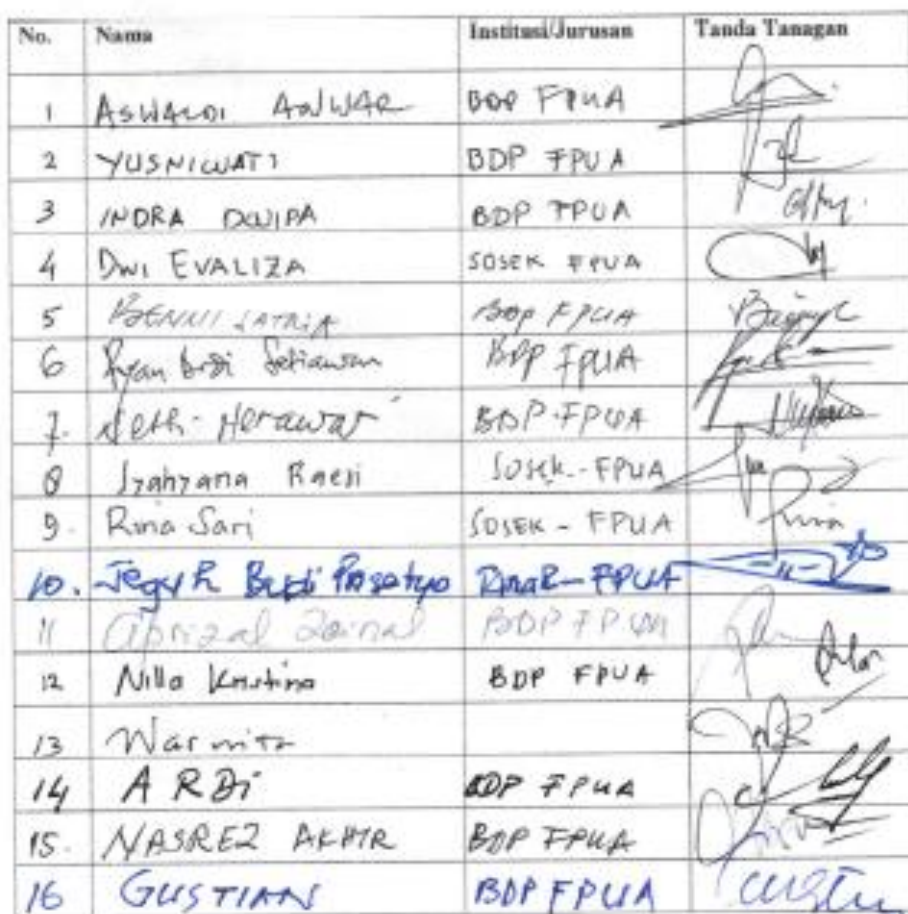 No. Nama Institusi/Jurusan Tanda Tanagan
1 ASWALDI ANWAR BDP FPUA
2 YUSNIWATI BDP FPUA
3 INDRA DWIPA BDP FPUA
4 DWI EVALIZA SOSEK FPUA
5 BENNI SATRIA BDP FPUA
6 Ryan Budi Setiawan BDP FPUA
7. Neth. Herawati BDP-FPUA
8 Raesi SOSEK-FPUA
9. Rina Sari SOSEK - FPUA Rina
10. Teguh Budi Prasetyo FPUA
11 aprizal zainal BDP FPUA
12 Nilla Kristina BDP FPUA
13 Warnita
14 ARDi BDP FPUA
15. NASREZ AKHIR BDP FPUA
16 GUSTIAN BDP FPUA